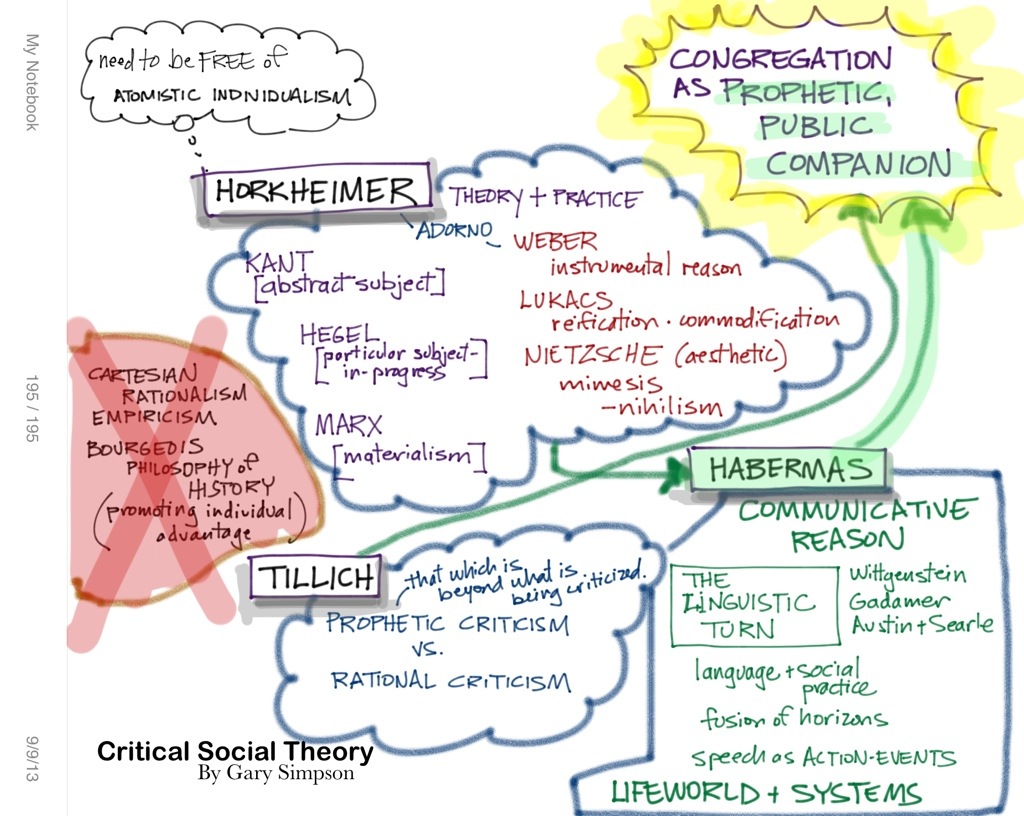 My Notebook
195 / 195
9/9/13
need to be FREE of
ATOMISTIC INDIVIDUALISM
CONGREGATION
AS PROPHETIC,
PUBLIC
COMPANION
HORKHEIMER
THEORY + PRACTICE
ADORNO
KANT
[abstract subject]
HEGEL
[particular subject-
in-progress]
MARX
[materialism]
WEBER
instrumental reason
LUKACS
reification · commodification
NIETZSCHE (aesthetic)
mimesis
-nihilism
CARTESIAN
RATIONALISM
EMPIRICISM
BOURGEOIS
PHILOSOPHY of
HISTORY
(promoting individual
advantage)
TILLICH
that which is
beyond what is
being criticized.
PROPHETIC CRITICISM
VS.
RATIONAL CRITICISM
HABERMAS
COMMUNICATIVE
REASON
THE
LINGUISTIC
TURN
Wittgenstein
Gadamer
Austin + Searle
language + social
practice
fusion of horizons
speech as ACTION-EVENTS
LIFEWORLD + SYSTEMS
Critical Social Theory
By Gary Simpson